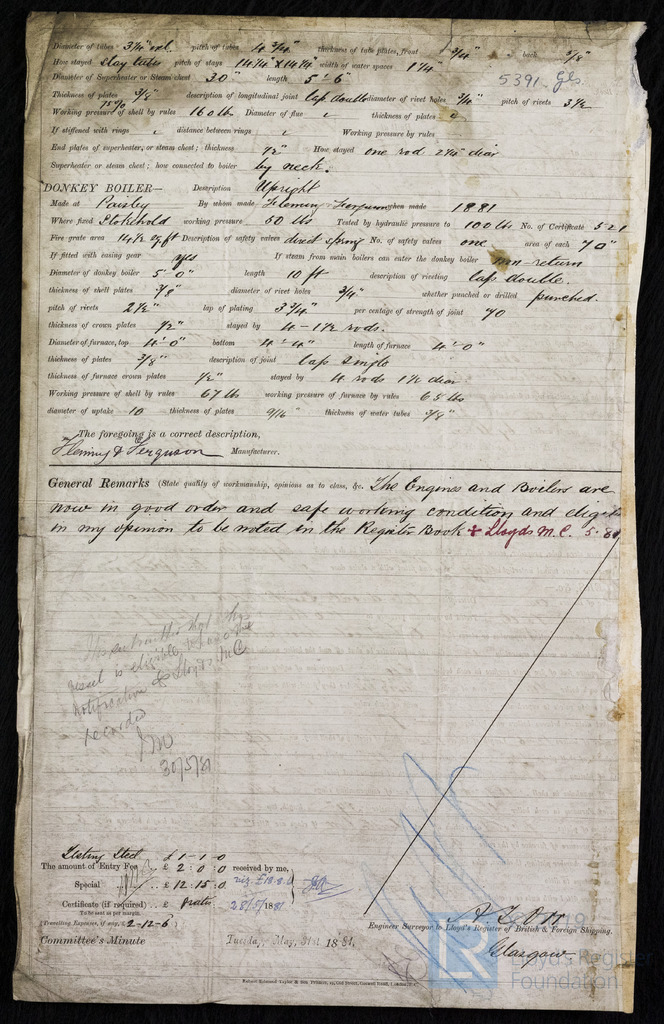 Diameter of tubes 3¼" ext. pitch of tubes 4¾" thickness of tube plates, front ¾" back ⅝"
How stayed Stay tubes pitch of stays 14¼" x 14¼" width of water spaces 1¼"
5391 Gls
Diameter of Superheater or Steam chest 30" length 5'6"
Thickness of plates ⅜" description of longitudinal joint lap double diameter of rivet holes ¾" pitch of rivets 3½
75%
Working pressure of shell by rules 160 lbs Diameter of flue thickness of plates
If stiffened with rings distance between rings Working pressure by rules
End plates of superheater, or steam chest; thickness ½" How stayed one rod 2¼" diar
Superheater or steam chest; how connected to boiler by neck.
DONKEY BOILER— Description Upright
Made at Paisley By whom made Fleming & Ferguson when made 1881
Where fixed Stokehold working pressure 50 lbs Tested by hydraulic pressure to 100 lbs No. of Certificate 521
Fire grate area 14½ sq ft Description of safety valves direct spring No. of safety valves one area of each 70"
If fitted with easing gear yes If steam from main boilers can enter the donkey boiler non-return
Diameter of donkey boiler 5'0" length 10 ft description of riveting lap double.
thickness of shell plates ⅜" diameter of rivet holes ¾" whether punched or drilled punched.
pitch of rivets 2½" lap of plating 3¾" per centage of strength of joint 70
thickness of crown plates ½" stayed by 4 - 1½ rods.
Diameter of furnace, top 4'0" bottom 4'4" length of furnace 4'0"
thickness of plates ⅜" description of joint lap single
thickness of furnace crown plates ½" stayed by 4 rods 1½ diar
Working pressure of shell by rules 67 lbs working pressure of furnace by rules 65 lbs
diameter of uptake 10 thickness of plates 9/16" thickness of water tubes ⅜"
The foregoing is a correct description,
Fleming & Ferguson Manufacturer.
General Remarks (State quality of workmanship, opinions as to class, &c. The Engines and Boilers are
now in good order and safe working condition and eligible
in my opinion to be noted in the Register Book + Lloyds M.C. 5.81
vessel is eligible to have the
notification Lloyd's MC
recorded
30/5/81
Testing Steel £ 1-1-0
The amount of Entry Fee .. £ 2:0:0 received by me,
Special .. £ 12:15:0
Certificate (if required) .. £ gratis 28/5/1881
To be sent as per margin.
(Travelling Expenses, if any, £ 2-12-6)
Engineer Surveyor to Lloyd's Register of British & Foreign Shipping.
Glasgow
Committee's Minute Tuesday, May, 31st 1881.
LR
Lloyd's Register
Foundation